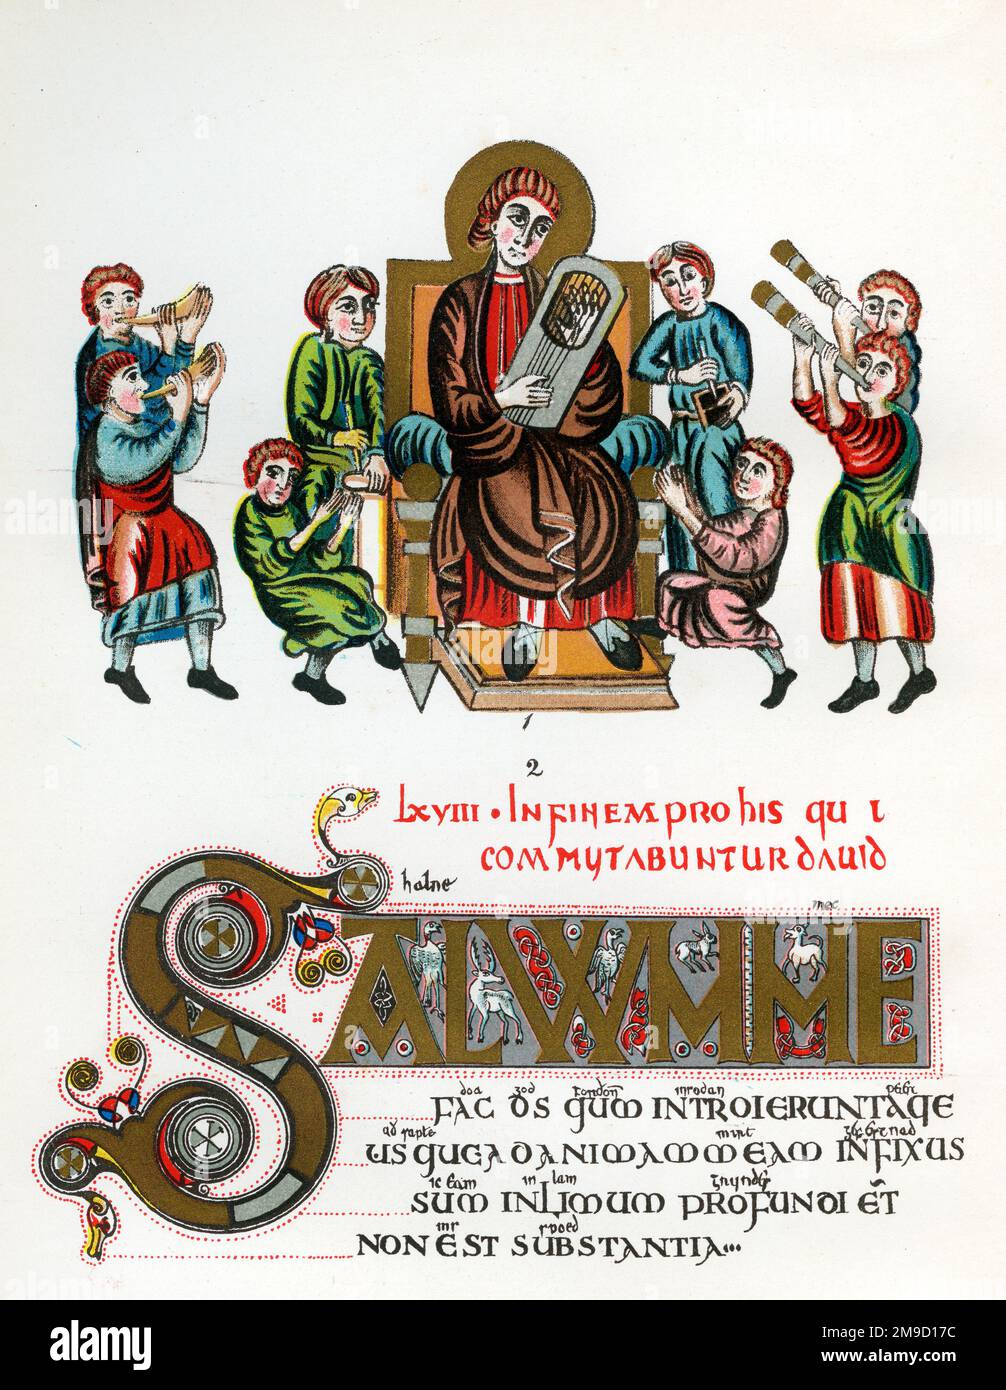 1
2
LXVIII · IN FINEM PRO his QU I
COMMUTABUNTUR DAUID
halne
mec
SALUUM ME
doa zod inrodan
FAC DS QUM INTROIERUNT AQE
mint
US QUE AD ANIMAM MEAM INFIXUS
ic eam in lam
SUM IN LIMUM PROFUNDI ET
NON EST SUBSTANTIA...
alamy
Image ID: 2M9D17C
www.alamy.com